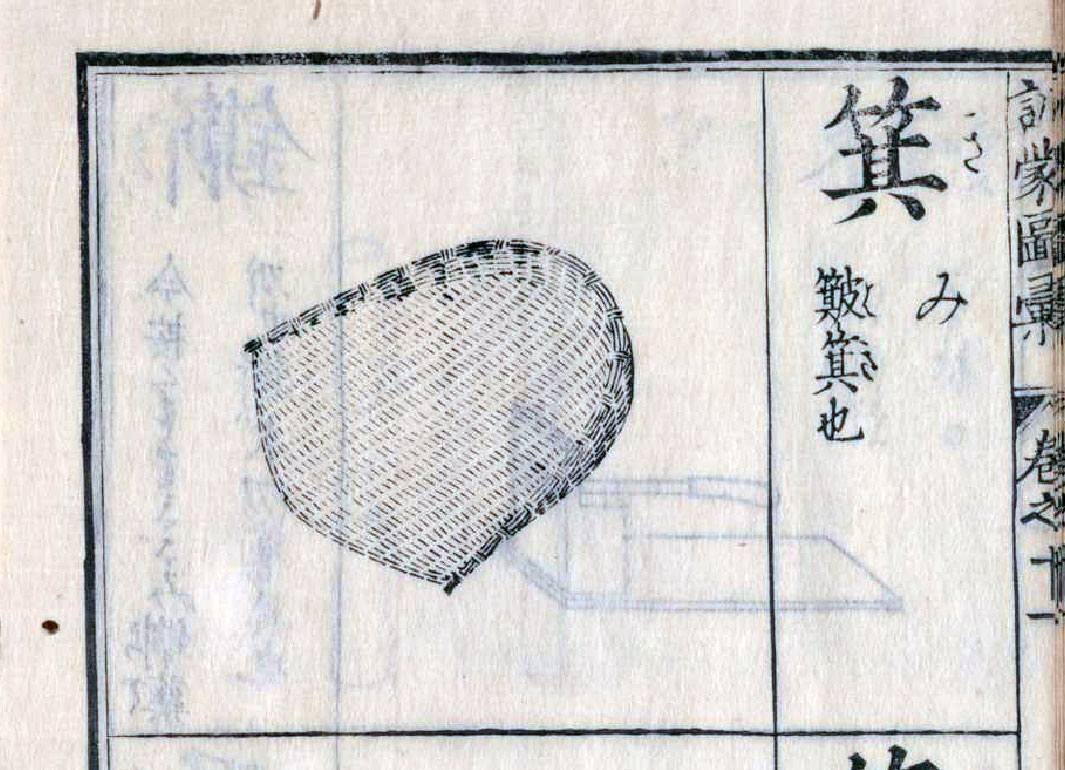 訓蒙圖彙 卷之十一
箕 き
み
簸箕也